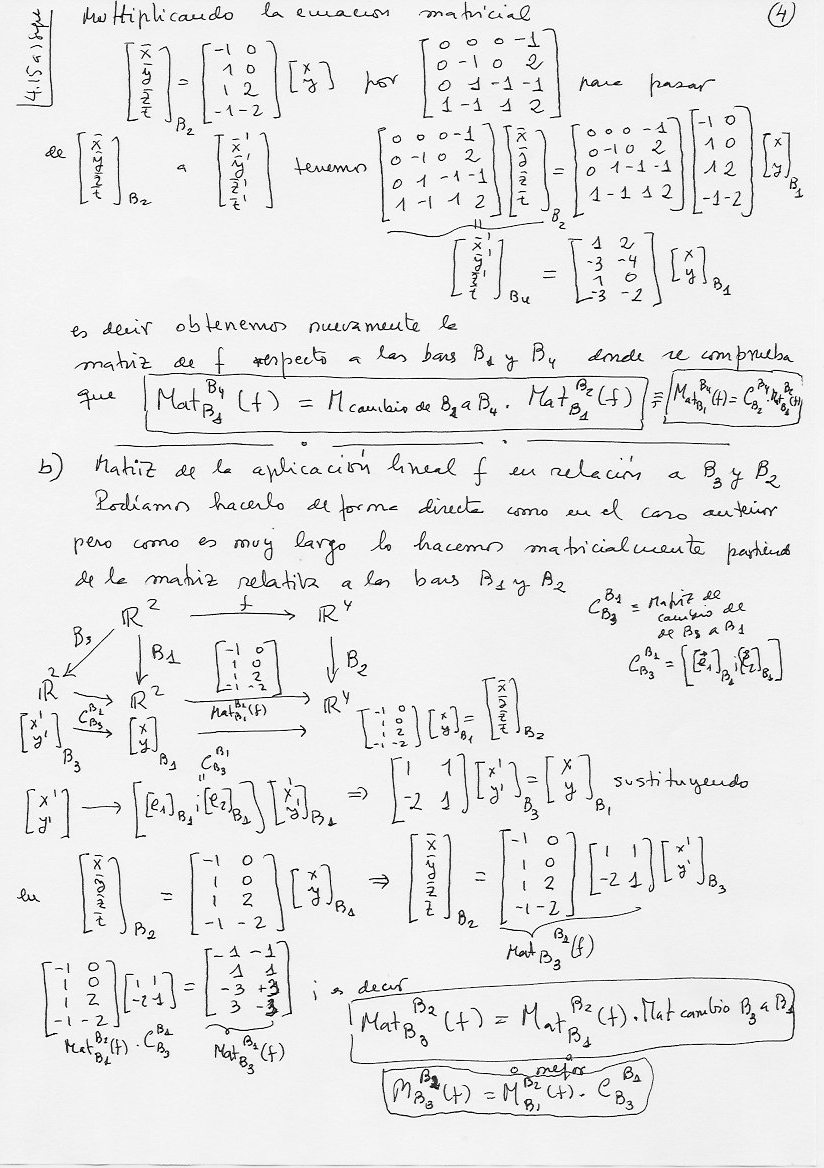 4.15 a) sigue
Multiplicando la ecuación matricial (4)
[x̄ ȳ z̄ t̄]B₂ = [-1 0; 1 0; 1 2; -1 -2] [x y] por [0 0 0 -1; 0 -1 0 2; 0 1 -1 -1; 1 -1 1 2] para pasar
de [x̄ ȳ z̄ t̄]B₂ a [x̄' ȳ' z̄' t̄'] tenemos [0 0 0 -1; 0 -1 0 2; 0 1 -1 -1; 1 -1 1 2] [x̄ ȳ z̄ t̄]B₂ = [0 0 0 -1; 0 -1 0 2; 0 1 -1 -1; 1 -1 1 2] [-1 0; 1 0; 1 2; -1 -2] [x y]B₁
=
[x̄' ȳ' z̄' t̄']B₄ = [1 2; -3 -4; 1 0; -3 -2] [x y]B₁
es decir obtenemos nuevamente la
matriz de f respecto a las bases B₁ y B₄ donde se comprueba
que Mat_B₁^B₄ (f) = M cambio de B₂ a B₄ · Mat_B₁^B₂ (f) ≡ Mat_B₁^B₄ (f) = C_B₂^B₄ · Mat_B₁^B₂ (f)
b) Matriz de la aplicación lineal f en relación a B₃ y B₂
Podíamos hacerlo de forma directa como en el caso anterior
pero como es muy largo lo hacemos matricialmente partiendo
de la matriz relativa a las bases B₁ y B₂
C_B₃^B₁ ≡ Matriz de
cambio de
de B₃ a B₁
C_B₃^B₁ = [[e⃗₁]B₁ ; [e⃗₂]B₁]
ℝ² f → ℝ⁴
B₃ B₁ [-1 0; 1 0; 1 2; -1 -2] B₂
ℝ² C_B₃^B₁ → ℝ² Mat_B₁^B₂ (f) → ℝ⁴
[x' y']B₃ → [x y]B₁ → [-1 0; 1 0; 1 2; -1 -2] [x y]B₁ = [x̄ ȳ z̄ t̄]B₂
C_B₃^B₁
=
[x' y'] → [[e₁]B₁ ; [e₂]B₁] [x' y']B₁ ⇒ [1 1; -2 1] [x' y']B₃ = [x y]B₁ sustituyendo
en [x̄ ȳ z̄ t̄]B₂ = [-1 0; 1 0; 1 2; -1 -2] [x y]B₁ ⇒ [x̄ ȳ z̄ t̄]B₂ = [-1 0; 1 0; 1 2; -1 -2] [1 1; -2 1] [x' y']B₃
Mat_B₃^B₂ (f)
[-1 0; 1 0; 1 2; -1 -2] [1 1; -2 1] = [-1 -1; 1 1; -3 +3; 3 -3] ; es decir
Mat_B₁^B₂ (f) · C_B₃^B₁ Mat_B₃^B₂ (f)
Mat_B₃^B₂ (f) = Mat_B₁^B₂ (f) · Mat cambio B₃ a B₁
o mejor
M_B₃^B₂ (f) = M_B₁^B₂ (f) · C_B₃^B₁